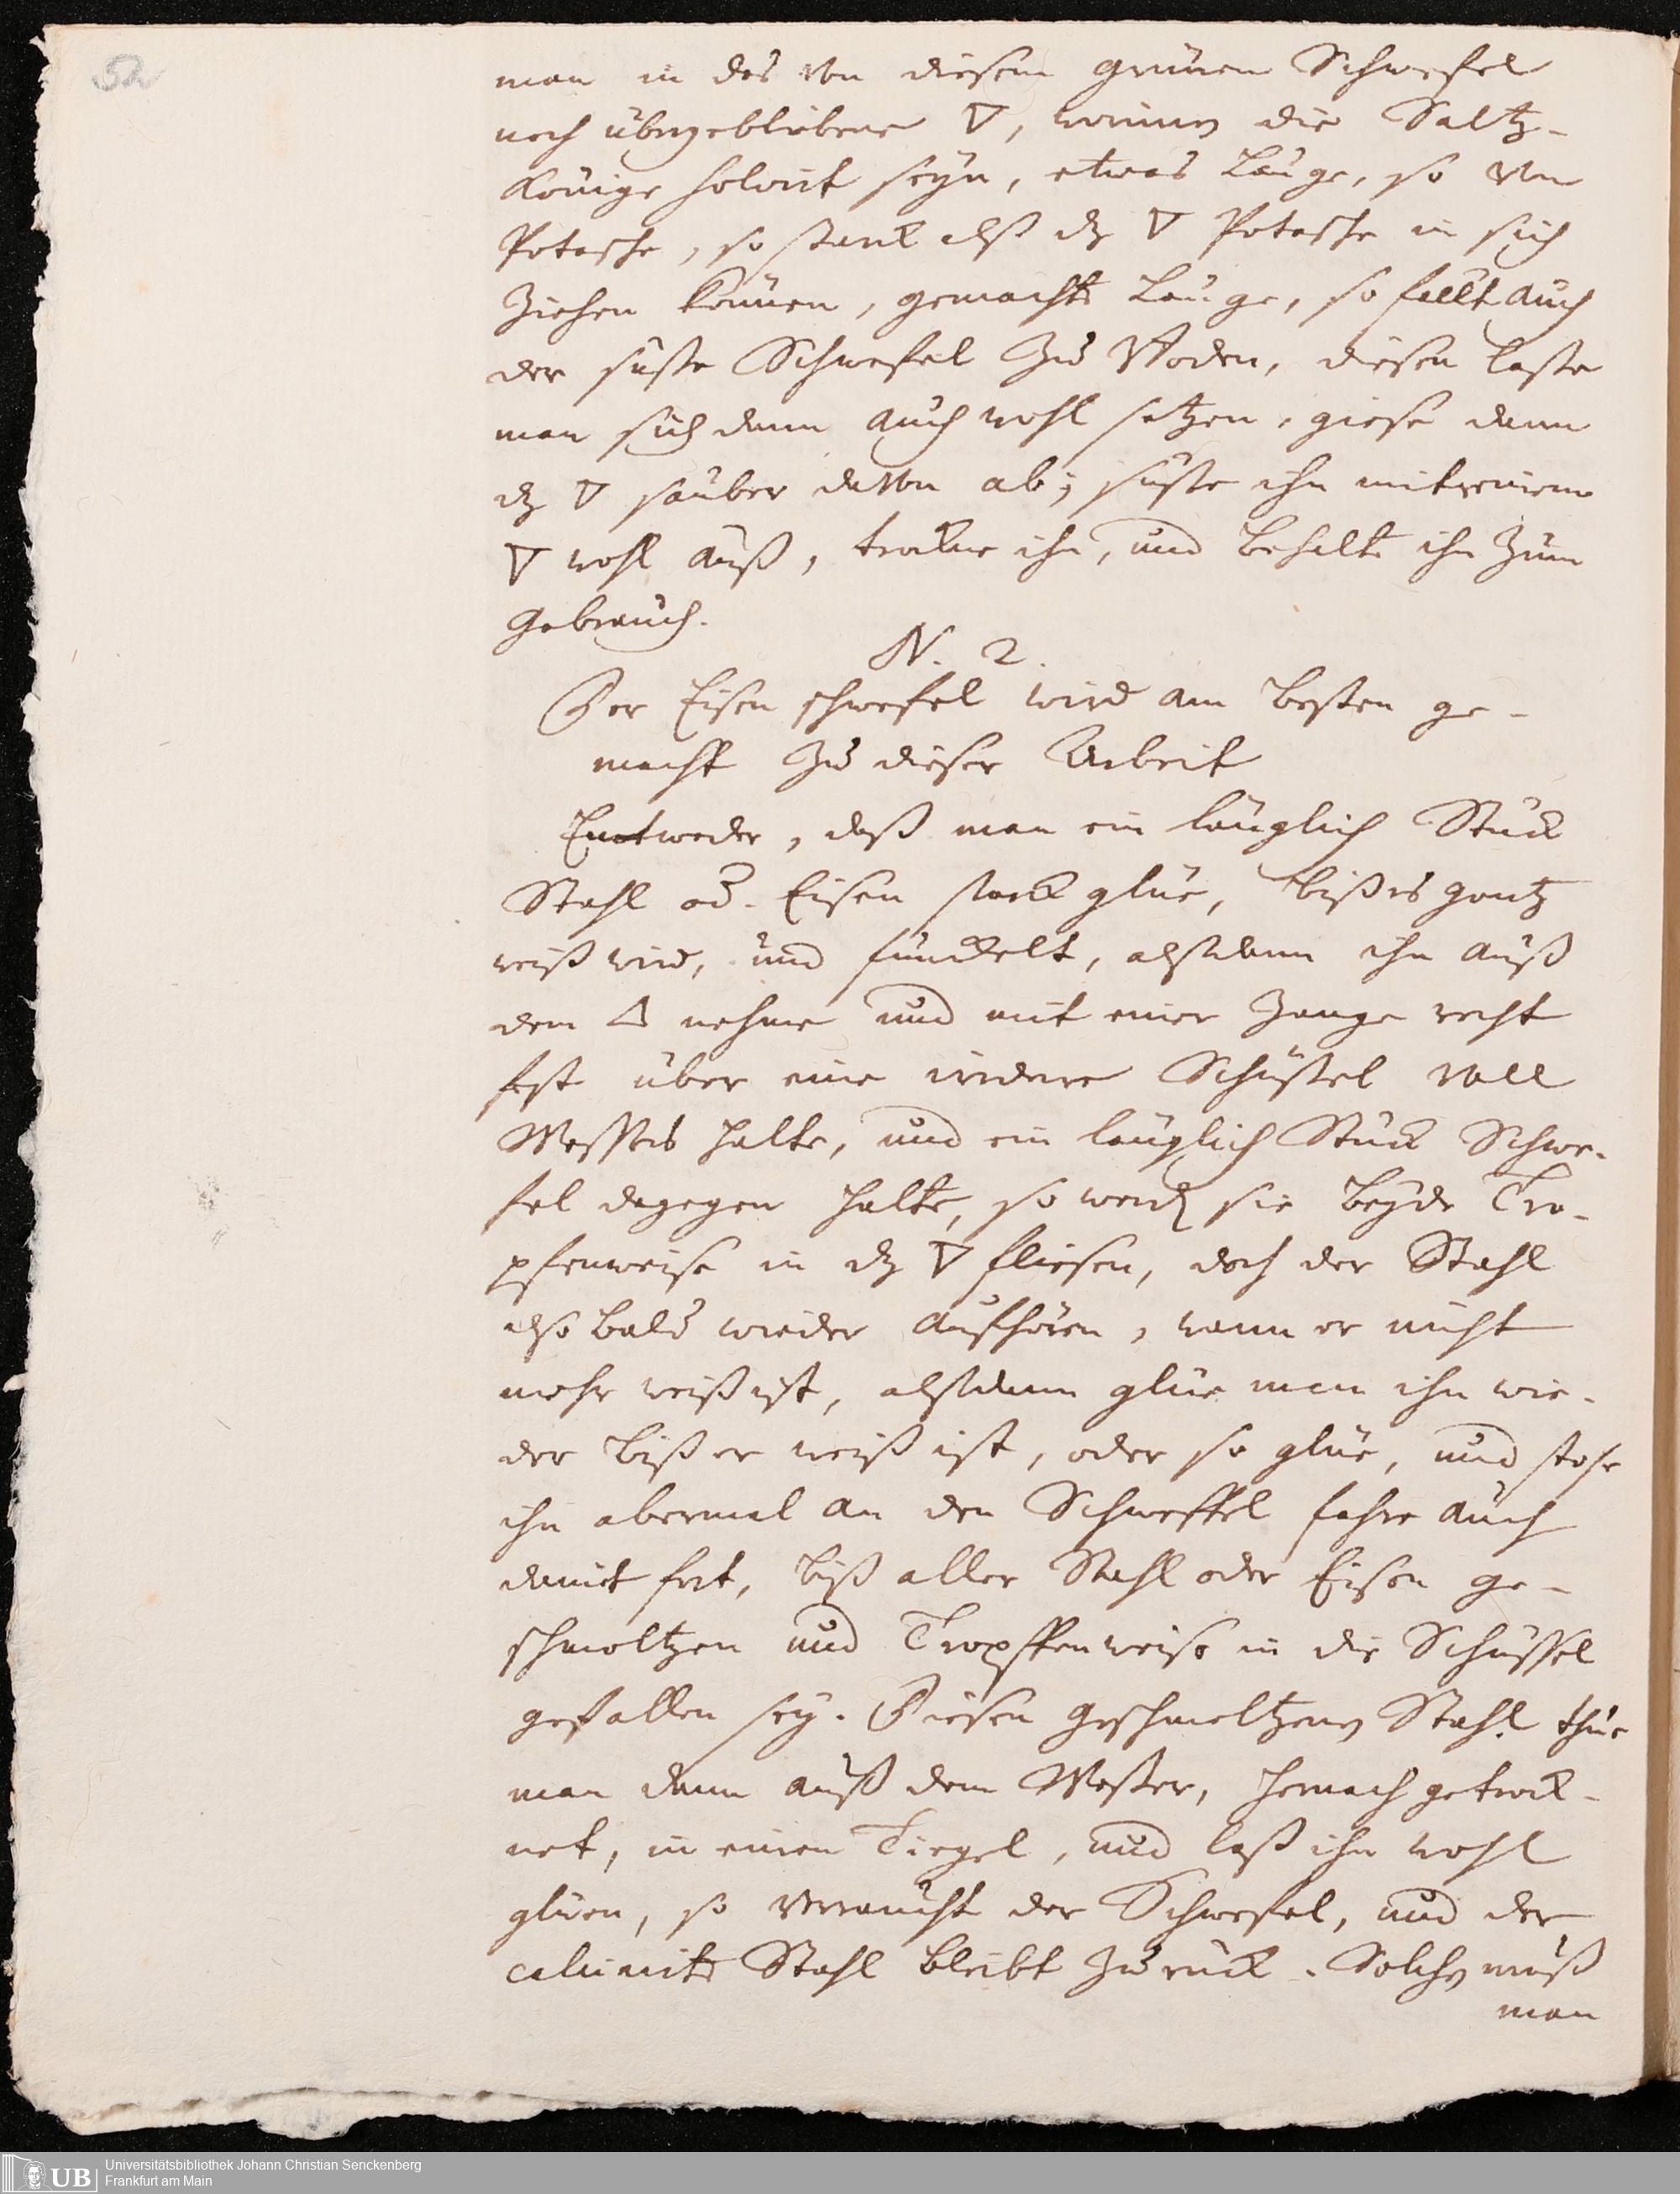 52
man in das von diesem grünen Schwefel
noch übergebliebene ▽, worinn die Saltz-
Könige solvirt seyn, etwas Lauge, so von
Potasche, so starck alß dz ▽ Potasche in sich
Ziehen können, gemachte Lauge, so fällt auch
der süße Schwefel Zu Boden, diesen laße
man sich dann auch wohl setzen, gieße dann
dz ▽ sauber davon ab; süße ihn mit reinem
▽ wohl auß, trockne ihn, und behalte ihn zum
Gebrauch.
N. 2.
Der Eisen schwefel wird am besten ge-
macht Zu dieser Arbeit
Entweder, daß man ein länglich Stück
Stahl od. Eisen starck glüe, biß es gantz
weiß wird, und funckelt, alßdann ihn auß
dem △ nehme und mit einer Zange recht
fest über eine irdene Schüßel voll
Waßers halte, und ein länglich Stück Schwe-
fel dagegen halte, so werden sie beyde Tro-
pfenweise in dz ▽ fliesen, doch der Stahl
also bald wieder aufhören, wann er nicht
mehr weiß ist, alßdann glüe man ihn wie-
der biß er weiß ist, oder so glüe, und stoße
ihn abermal an den Schweffel fahre auch
damit fort, biß aller Stahl oder Eisen ge-
schmoltzen und Tropffenweise in die Schüssel
gefallen sey. Diesen geschmoltzenen Stahl thue
man dann auß dem Waßer, hernach getrock-
net, in einen Tiegel, und laß ihn wohl
glüen, so verraucht der Schwefel, und der
calcinirte Stahl bleibt Zurück. Solchen muß
man
UB
Universitätsbibliothek Johann Christian Senckenberg
Frankfurt am Main